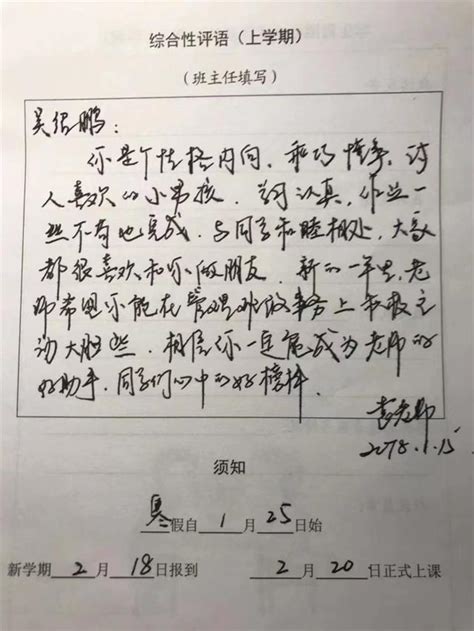 综合性评语（上学期）
（班主任填写）
吴绍鹏：
你是个性格内向、乖巧懂事、讨
人喜欢的小男孩。学习认真，作业一
丝不苟地完成。与同学和睦相处，大家
都很喜欢和你做朋友。新的一年里，老
师希望你能在管理班级事务上积极主
动大胆些，相信你一定能成为老师的
好助手，同学们心中的好榜样。
老师
2018.1.15
须知
寒假自1月25日始
新学期2月18日报到 2月20日正式上课